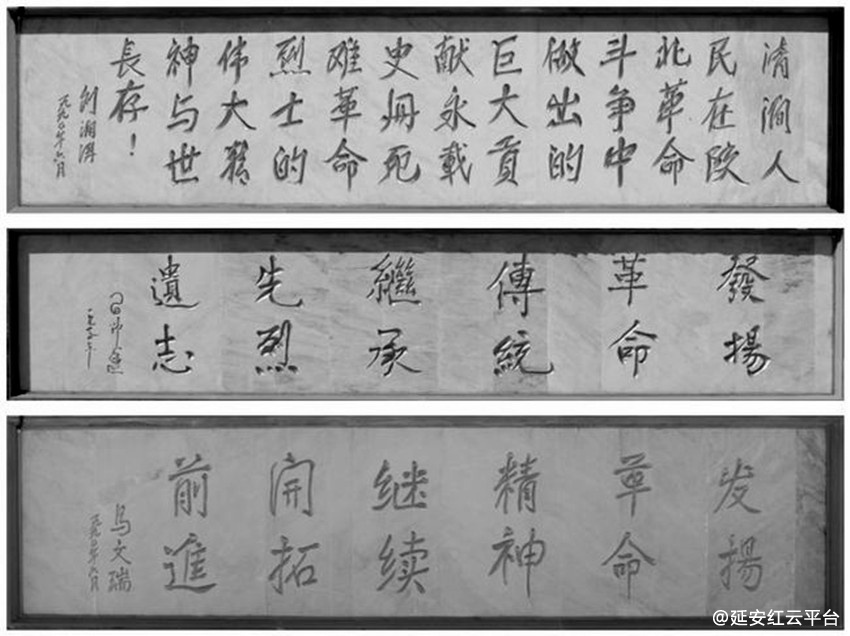 清涧人
民在陕
北革命
斗争中
做出的
巨大贡
献永载
史册死
难革命
烈士的
伟大精
神与世
長存！
刘澜涛
一九九〇年六月
發揚
革命
傳統
繼承
先烈
遺志
发揚
革命
精神
继续
開拓
前進
马文瑞
@延安红云平台